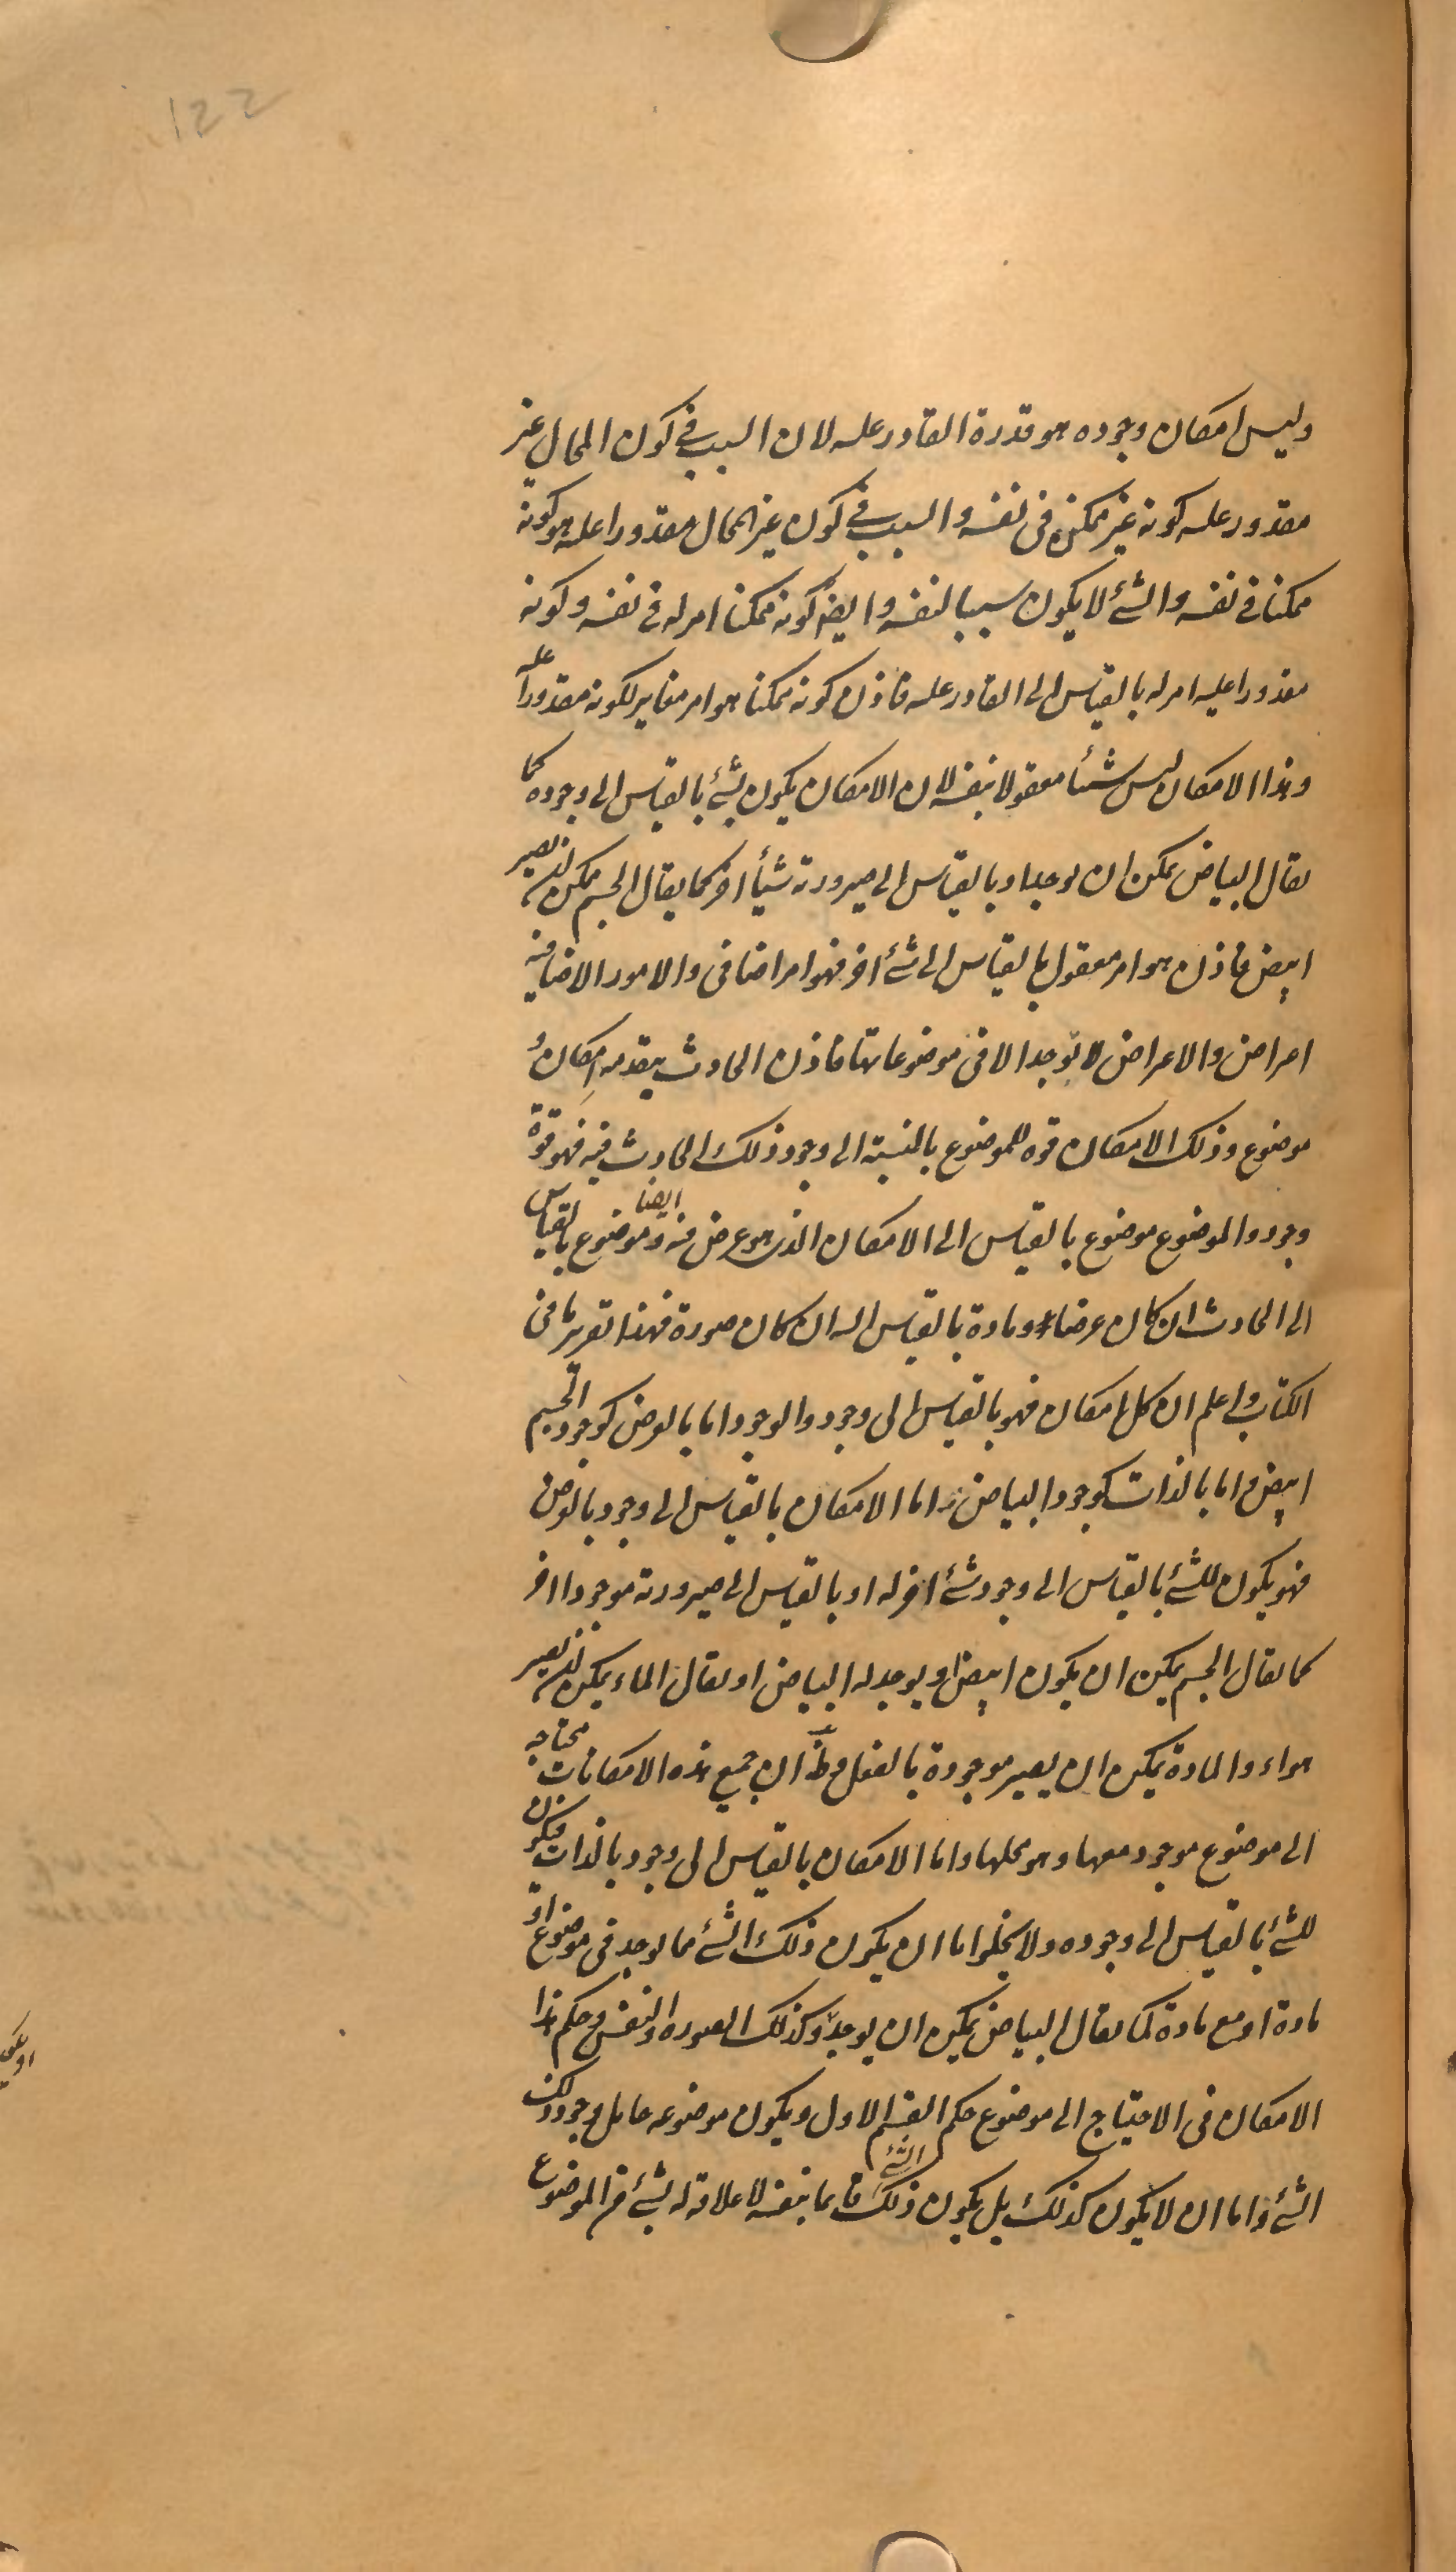 122
وليس امكان وجوده هو قدرة القادر عليه لان السبب في كون المحال غير
مقدور عليه كونه غير ممكن في نفسه والسبب في كون غير المحال مقدورا عليه هو كونه
ممكنا في نفسه والشئ لا يكون سببا لنفسه وايضا كونه ممكنا امر له في نفسه وكونه
مقدورا عليه امر له بالقياس الى القادر عليه فاذن كونه ممكنا هو امر مغاير لكونه مقدورا عليه
وهذا الامكان ليس شيئا معقولا بنفسه لان الامكان يكون لشئ بالقياس الى وجوده كما
يقال البياض يمكن ان يوجد او بالقياس الى صيرورته شيأ اخر كما يقال الجسم يمكن ان يصير
ابيض فاذن هو امر معقول بالقياس الى شئ اخر فهو امر اضافى والامور الاضافية
اعراض والاعراض لا توجد الا فى موضوعاتها فاذن الحادث يتقدمه امكان و
موضوع وذلك الامكان قوه للموضوع بالنسبة الى وجود ذلك الحادث فيه فهو قوة
وجود والموضوع موضوع بالقياس الى الامكان الذى هو عرض فيه وموضوع ايضا بالقياس
الى الحادث ان كان عرضا ومادة بالقياس اليه ان كان صورة فهذا تقرير ما فى
الكتاب واعلم ان كل امكان فهو بالقياس الى وجود والوجود اما بالعرض كوجود الجسم
ابيض واما بالذات كوجود البياض واما الامكان بالقياس الى وجود بالعرض
فهو يكون للشئ بالقياس الى وجود شئ اخر له او بالقياس الى صيرورته موجودا اخر
كما يقال الجسم يمكن ان يكون ابيض او يوجد له البياض او يقال الماء يمكن ان يصير
هواء والمادة يمكن ان يصير موجودة بالفعل وظ ان جميع هذه الامكانات محتاجة
الى موضوع موجود معها وهو محلها واما الامكان بالقياس الى وجود بالذات فيكون
للشئ بالقياس الى وجوده ولا يخلوا ما ان يكون ذلك الشئ مما يوجد فى موضوع او
مادة او مع مادة كما يقال البياض يمكن ان يوجد وكذلك الصوره والنفس وحكم هذا
الامكان فى الاحتياج الى موضوع حكم القسم الاول ويكون موضوعه حامل وجود ذلك
الشئ واما ان لا يكون كذلك بل يكون ذلك الشئ قائما بنفسه لا علاقة له بشئ من الموضوع